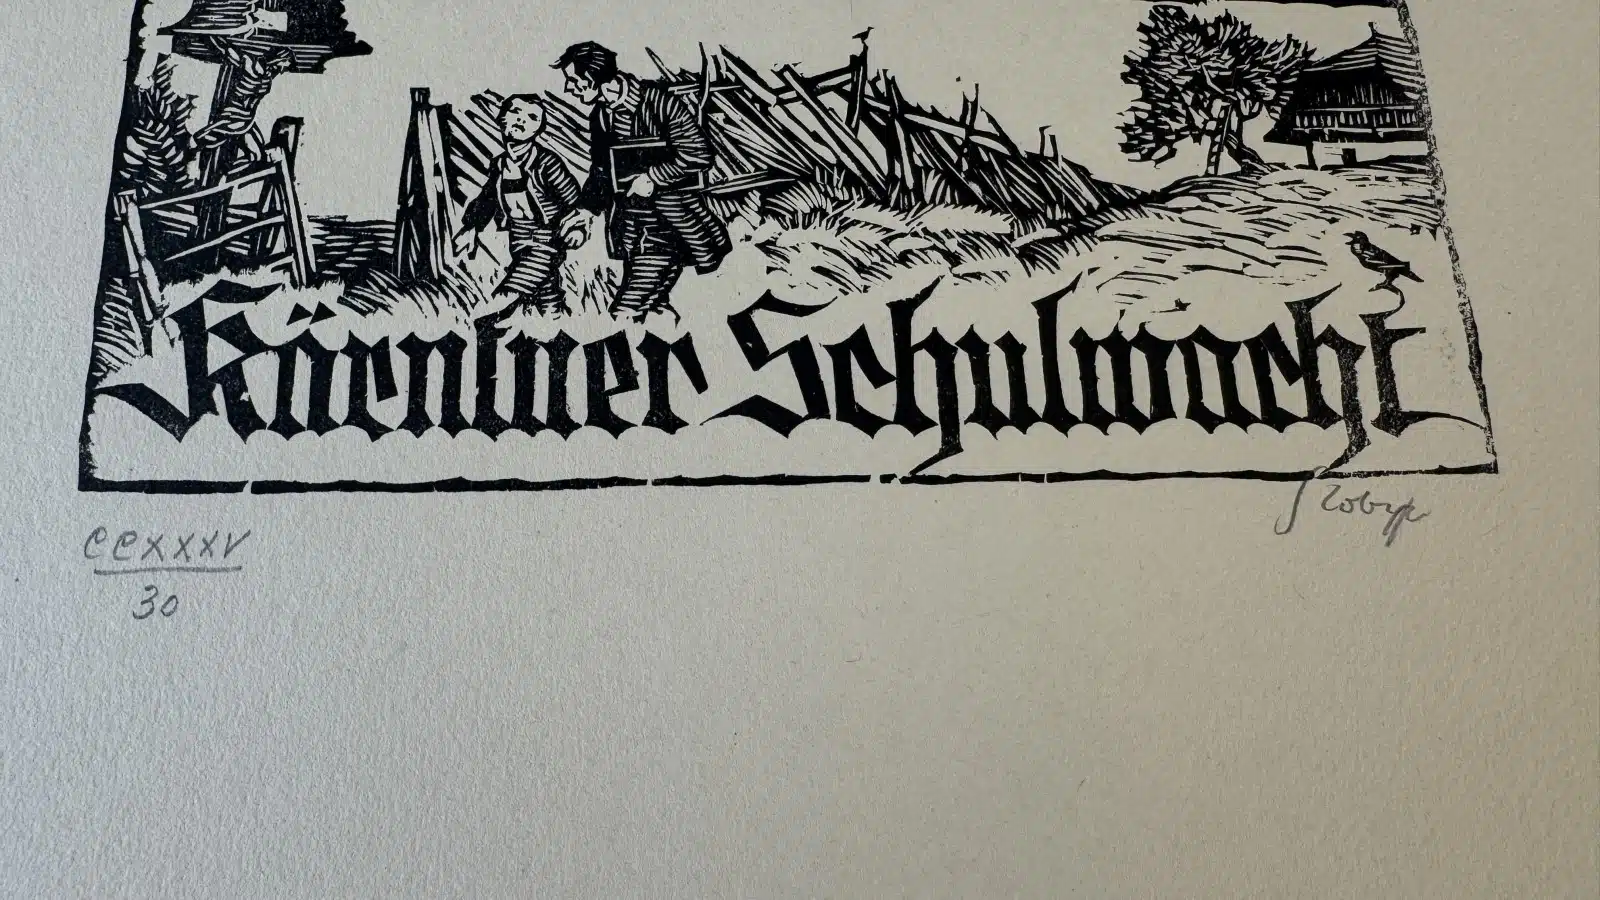 Kärntner Schulwacht
CCXXXV
30